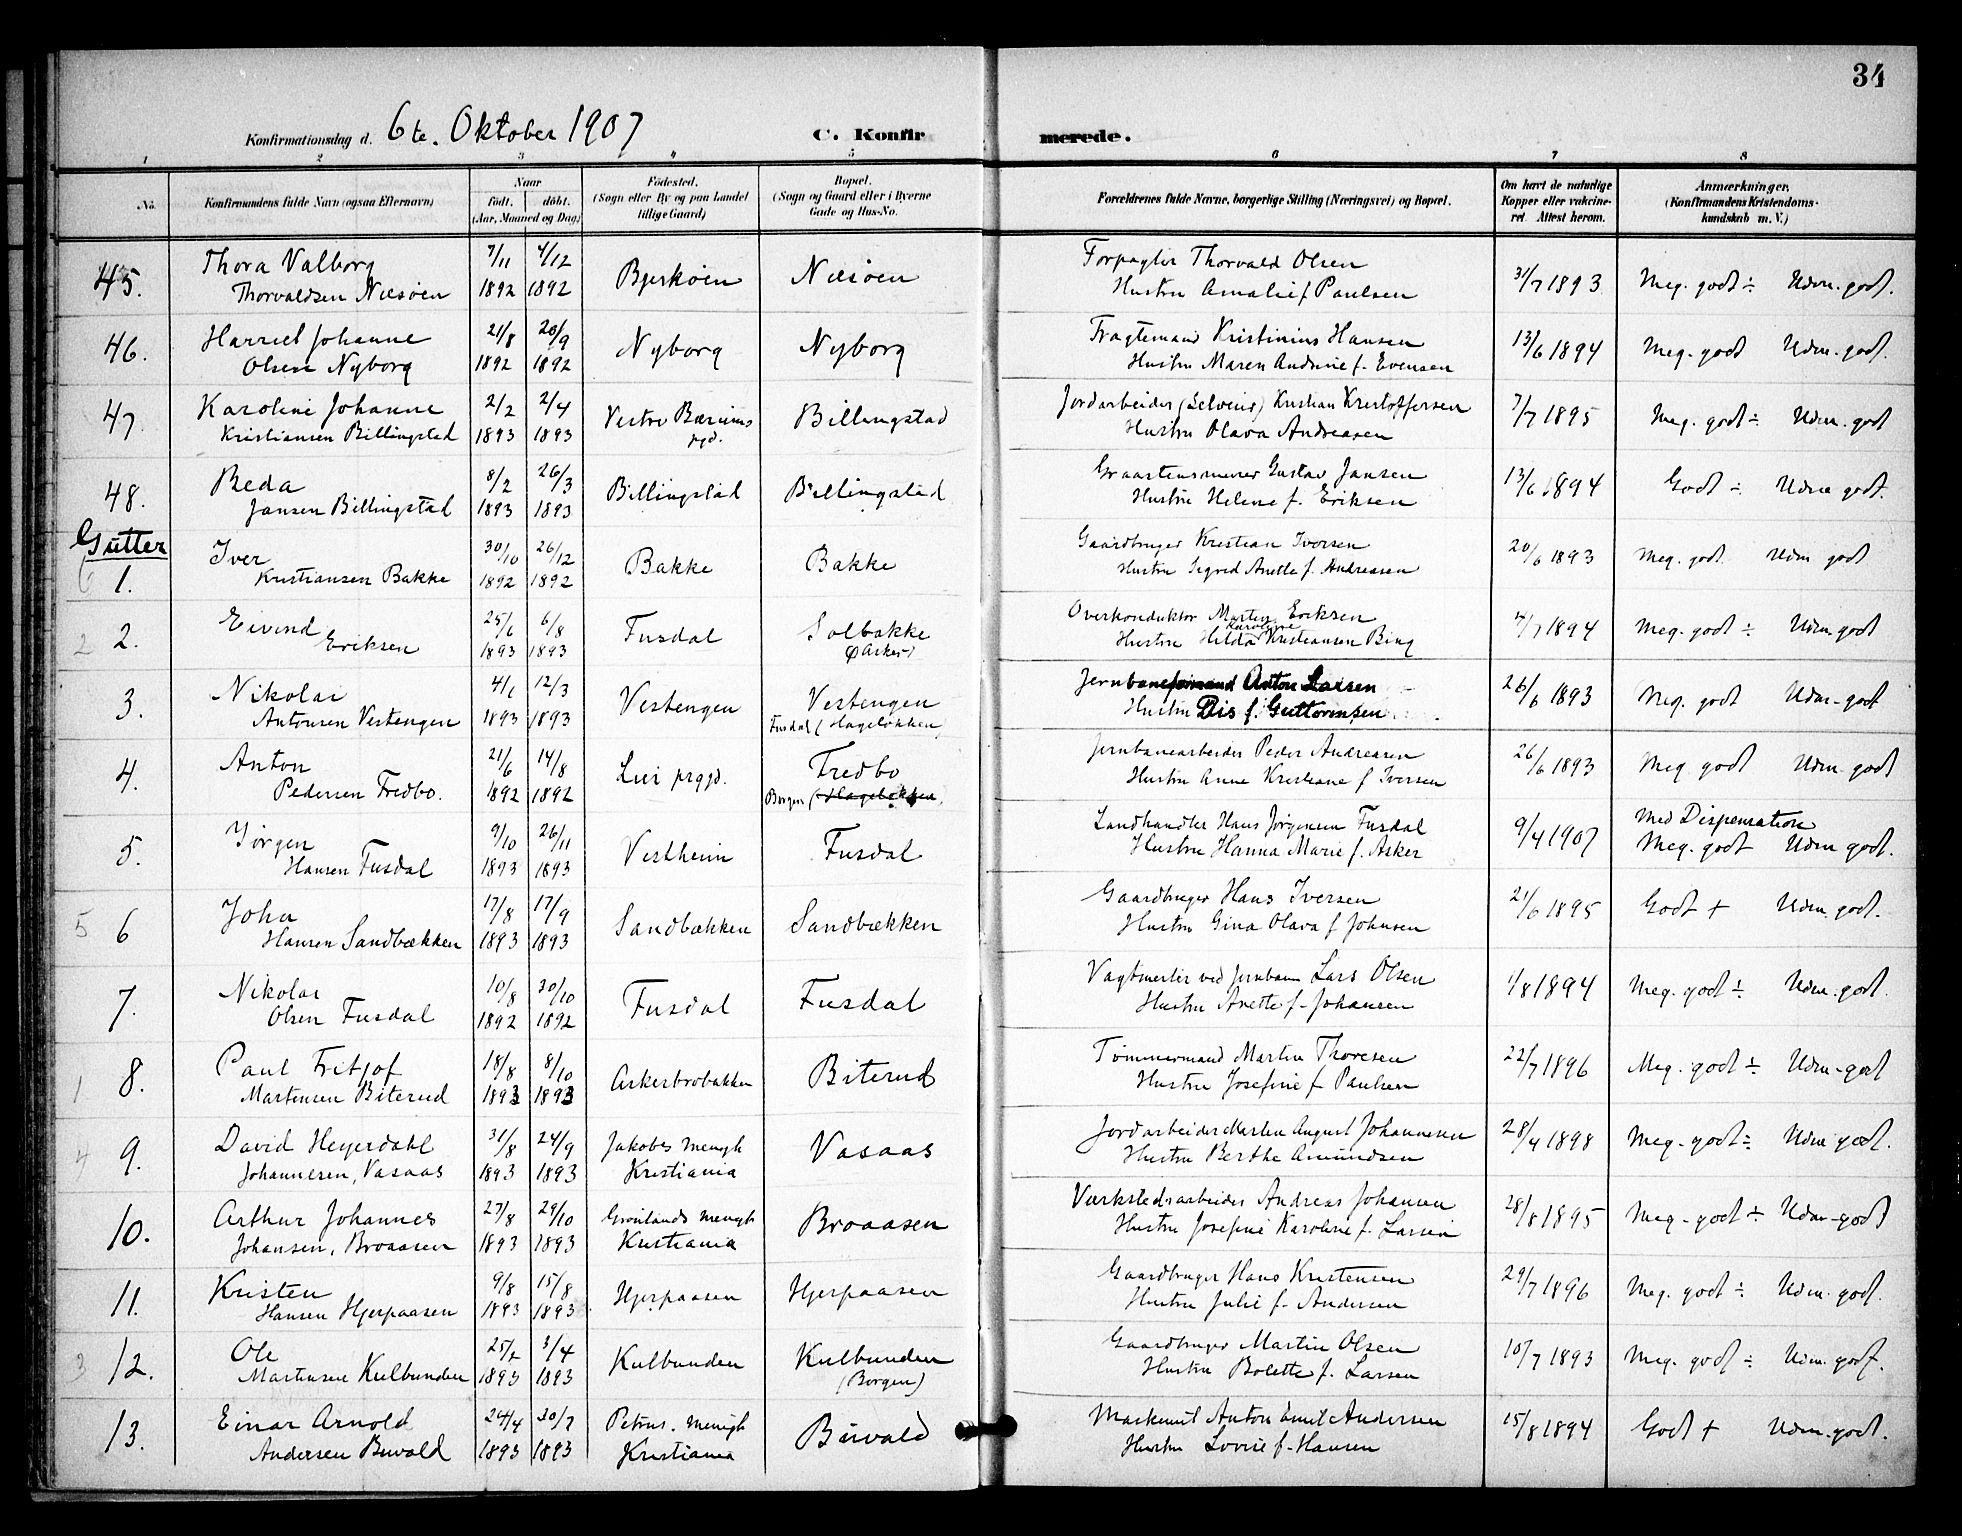 34
Konfirmationsdag d. 6te. Oktober 1907 C. Konfirmerede.
1 2 3 4 5 6 7 8
No. Konfirmandens fulde Navn (ogsaa Efternavn) Naar født. døbt. (Aar, Maaned og Dag) Fødested. (Sogn eller By og paa Landet tillige Gaard) Bopæl. (Sogn og Gaard eller i Byerne Gade og Hus-No. Forældrenes fulde Navne, borgerlige Stilling (Næringsvei) og Bopæl. Om havt de naturlige Kopper eller vakcineret. Attest herom. Anmærkninger. (Konfirmandens Kristendomskundskab m. V.)
45. Thora Valborg 7/11 4/12 Bjerkøen Næsøen Forpagter Thorvald Olsen 31/7 1893 Meg. godt ÷ Udm. godt.
Thorvaldsen Næsøen 1892 1892 Hustru Amalie f Paulsen
46. Harriet Johanne 21/8 20/9 Nyborg Nyborg Fragtemand Kristinius Hansen 13/6 1894 Meg. godt Udm. godt.
Olsen Nyborg 1892 1892 Hustru Maren Andrine f. Evensen
47. Karoline Johanne 2/2 2/4 Vestre Bærums Billingstad Jordarbeider (Selveier) Kristian Kristoffersen 7/7 1895 Meg. godt ÷ Udm. godt
Kristiansen Billingstad 1893 1893 pgd. Hustru Olava Andreasen
48. Beda 8/2 26/3 Billingstad Billingstad Graastensmurer Gustav Jansen 13/6 1894 Godt ÷ Udm godt.
Jansen Billingstad 1893 1893 Hustru Helene f. Eriksen
Gutter
6 1. Iver 30/10 26/12 Bakke Bakke Gaardbruger Kristian Iversen 20/6 1893 Meg. godt Udm godt
Kristiansen Bakke 1892 1892 Hustru Sigrid Anette f. Andreasen
2 2. Eivind 25/6 6/8 Fusdal Solbakke Overkonduktør Martin Eriksen 4/7 1894 Meg. godt ÷ Udm. godt
Eriksen 1893 1893 (Asker) Hustru Hilda Karoline Kristiansen Bing
3. Nikolai 4/1 12/3 Vestengen Vestengen Jernbaneformand Anton Larsen 26/6 1893 Meg. godt Udm. godt
Antonsen Vestengen 1893 1893 Fusdal (Hageløkken) Hustru Dis f. Guttormsen
4. Anton 21/6 14/8 Lier prgjd. Fredbo Jernbanearbeider Peder Andreasen 26/6 1893 Meg godt Udm. godt
Pedersen Fredbo. 1892 1892 Borgen (Hageløkken) Hustru Anne Kristiane f Iversen
5. Jørgen 9/10 26/11 Vestheim Fusdal Landhandler Hans Jørgensen Fusdal 9/4 1907 Med Dispensation
Hansen Fusdal 1893 1893 Hustru Hanna Marie f. Asker Meg. godt Udm godt.
5 6 John 17/8 17/9 Sandbækken Sandbækken Gaardbruger Hans Iversen 21/6 1895 Godt + Udm. godt.
Hansen Sandbækken 1893 1893 Hustru Gina Olava f Johnsen
7. Nikolai 10/8 30/10 Fusdal Fusdal Vagtmester ved Jernbanen Lars Olsen 1/8 1894 Meg. godt ÷ Udm. godt.
Olsen Fusdal 1892 1892 Hustru Anette f. Johansen
1 8. Paul Fritjof 18/8 8/10 Askerbrobakken Biterud Tømmermand Martin Thoresen 22/7 1896 Meg. godt ÷ Udm. godt
Martensen Biterud 1893 1893 Hustru Josefine f Paulsen
4 9. David Heyerdahl 31/8 24/9 Jakobs menigh Vasaas Jordarbeider Martin August Johannesen 28/4 1898 Meg. godt ÷ Udm. godt.
Johannesen, Vasaas 1893 1893 Kristiania Hustru Berthe Amundsen
10. Arthur Johannes 27/8 29/10 Grønlands menigh Broaasen Værkstedsarbeider Andreas Johansen 28/8 1895 Meg. godt ÷ Udm. godt
Johansen, Broaasen 1893 1893 Kristiania Hustru Josefine Karoline f. Larsen
11. Kristen 9/8 15/8 Hjerpaasen Hjerpaasen Gaardbruger Hans Kristensen 29/7 1896 Meg. godt ÷ Udm. godt.
Hansen Hjerpaasen 1893 1893 Hustru Julie f. Andersen
3 12. Ole 25/2 3/4 Kulbunden Kulbunden Gaardbruger Martin Olsen 10/7 1893 Meg. godt ÷ Udm. godt.
Martinsen Kulbunden 1893 1893 (Borgen) Hustru Bolette f. Larsen
13. Einar Arnold 24/4 30/7 Petrus. menigh Buvald Maskinist Anton Emil Andersen 15/8 1894 Godt + Udm. godt.
Andersen Buvald 1893 1893 Kristiania Hustru Lovise f. Hansen